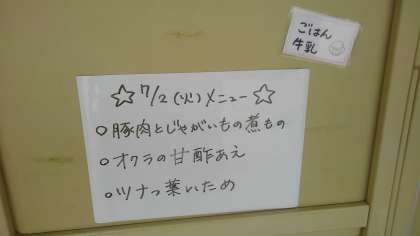 ごはん
牛乳
☆7/2(火)メニュー☆
○豚肉とじゃがいもの煮もの
○オクラの甘酢あえ
○ツナっ葉いため